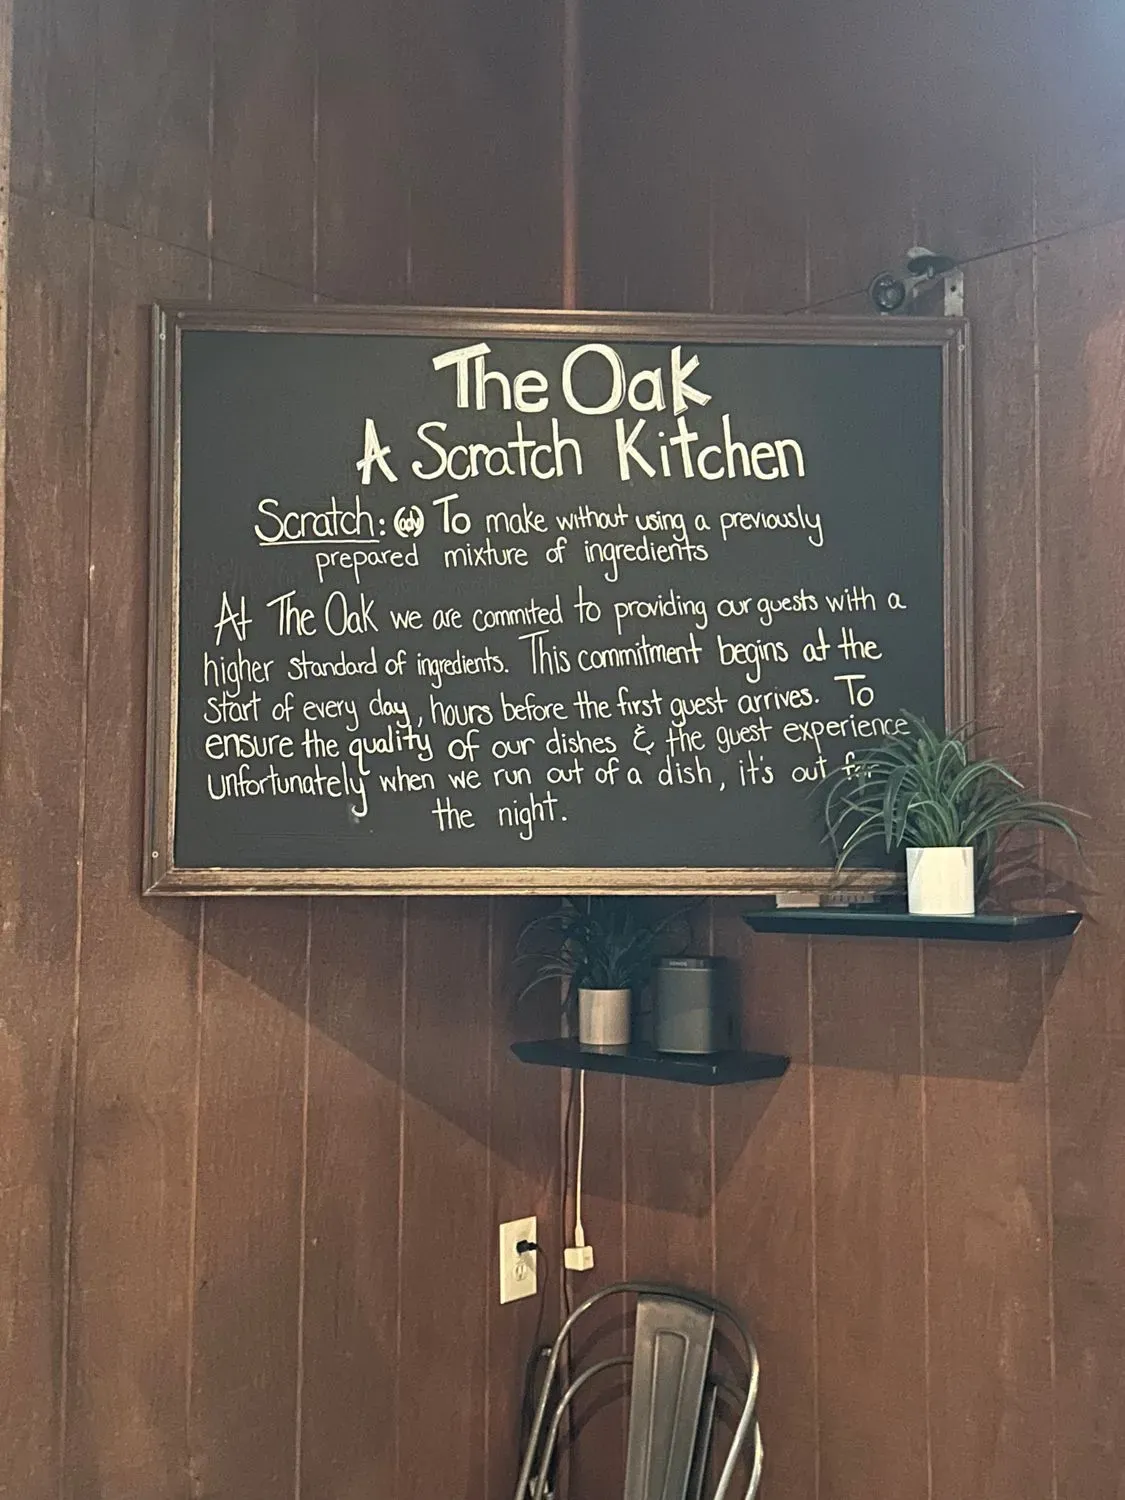 The Oak
A Scratch Kitchen
Scratch: (adv) To make without using a previously
prepared mixture of ingredients
At The Oak we are commited to providing our guests with a
higher standard of ingredients. This commitment begins at the
start of every day, hours before the first guest arrives. To
ensure the quality of our dishes & the guest experience
Unfortunately when we run out of a dish, it's out for
the night.
SONOS